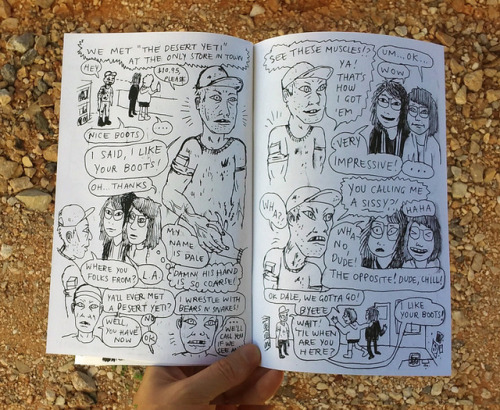 WE MET "THE DESERT YETI"
AT THE ONLY STORE IN TOWN
HEY
$10.95,
PLEASE
NICE BOOTS
...
I SAID, I LIKE
YOUR BOOTS!
OH... THANKS
MY
NAME
IS DALE
WHERE YOU
FOLKS FROM?
L.A.
DAMN HIS HAND
IS SO COARSE!
YA'LL EVER MET
A DESERT YETI?
NO
WELL,
YOU HAVE
NOW
OK
I WRESTLE WITH
BEARS N' SNAKES!
WE'LL
CALL YOU
IF WE
SEE
SEE THESE MUSCLES!?
YA!
THAT'S
HOW
I GOT
'EM
UM... OK...
WOW
VERY
IMPRESSIVE!
...
WHAT?
YOU CALLING ME
A SISSY?
HAHA
WHA-
NO,
DUDE!
THE OPPOSITE! DUDE, CHILL!
OK DALE, WE GOTTA GO!
BYEEE
WAIT!
'TIL WHEN
ARE YOU
HERE?
I LIKE
YOUR BOOTS!